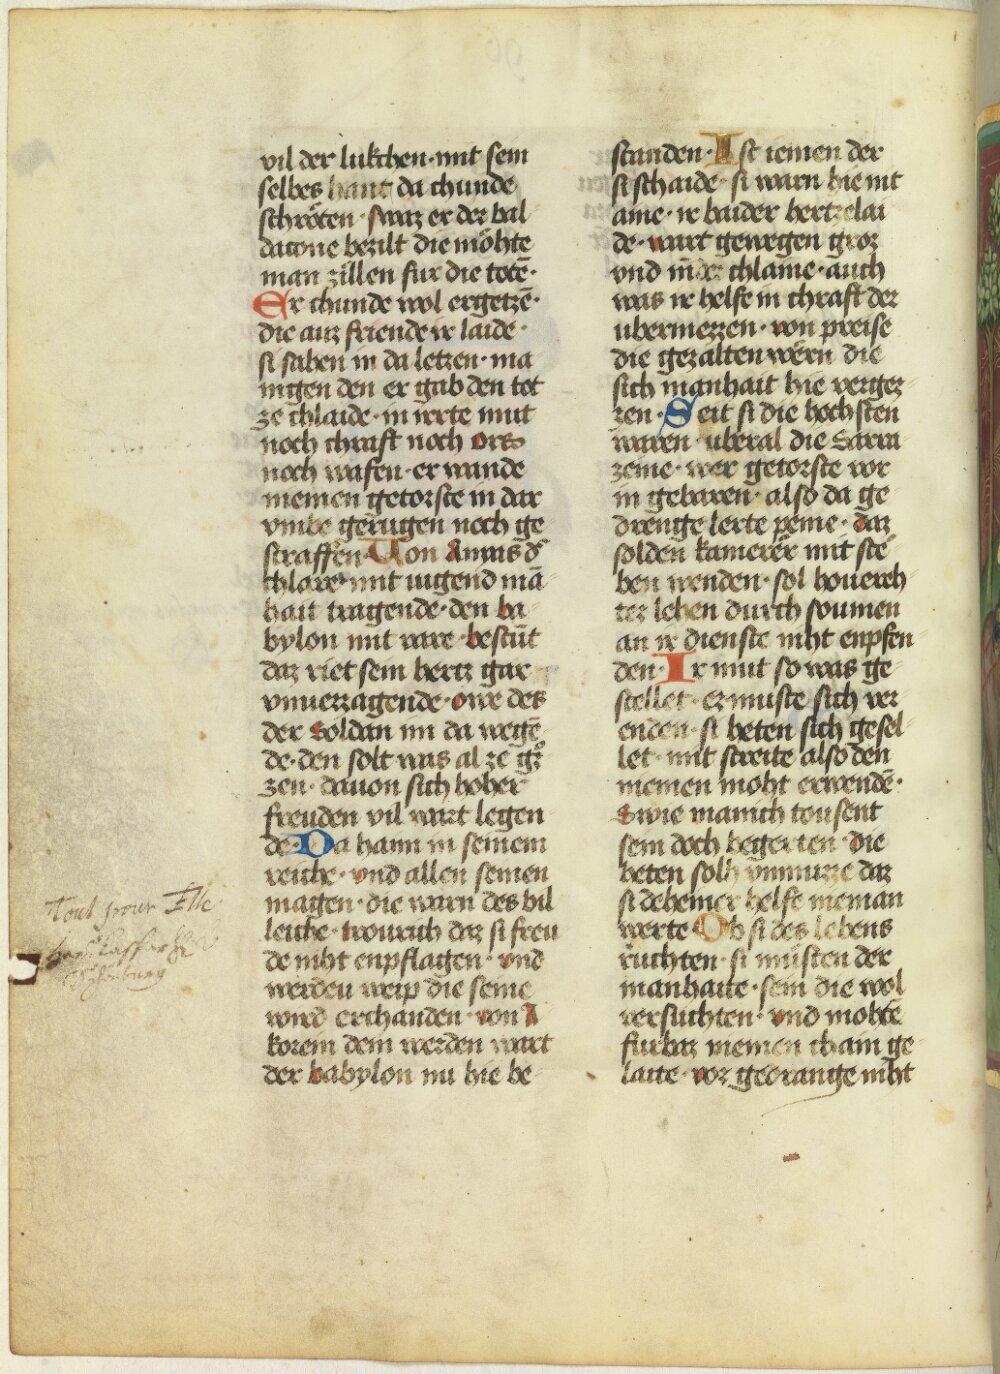 vil der lukchen · mit sein
selbes hant da chunde
schröten · swaz er der bal
datone bezilt die möhte
man zillen fur die totē ·
Er chunde wol ergetzē ·
die auz friende ir laide ·
si saben in da letzen · ma
nigen den er gab den tot
ze chlaide · in irrte mut
noch chraft noch ors
noch wafen · er wande
niemen getorste in dar
vmbe gerugen noch ge
straffen · Von Annis d͛
chlare mit tugend mā
hait tragende · den ba
bylon mit vare bestūt
daz riet sein hertz gar
vnuerzagende · owe des
der Soldan im da wegē
de · den solt was al ze g͛z
zen · dauon sich hoher
freuden vil wart legen
de · Da haim in seinem
reiche · vnd allen seinen
magen · die warn des bil
leiche · trourich daz si freu
de niht enpflagen · vnd
werdeu weip die seine
wird erchanden · von A
korein dem werden wart
der babylon nu hie be
standen · Ist iemen der
si schaide · si warn hie nit
aine · ir baider hertzelai
de · wart gewegen groz
vnd minder chlaine · auch
was ir helfe in chraft der
ubermezzen · von preise
die gezalten wern die
sich manhait hie verge
zzen · Seit si die hochsten
waren · uberal die Sarra
zeine · wer getorste vor
in gebaren · also da ge
drenge lerte peine · daz
solden kamerer mit ste
ben wenden · sol houereh
ter lehen durch soumen
an ir dienste niht enpfen
den · Ir mut so was ge
stellet · er muste sich ver
enden · si heten sich gesel
let · mit streite also den
niemen moht erwendē ·
Swie manich tousent
sein doch begerten · die
heten solh vnmuzze daz
si deheiner helfe nieman
werte · Ob si des lebens
ruchten · si musten der
manhaite · sein die wol
versuchten · vnd mohte
furbaz niemen chain ge
laite · vor gedrange niht
Tout pour Elle